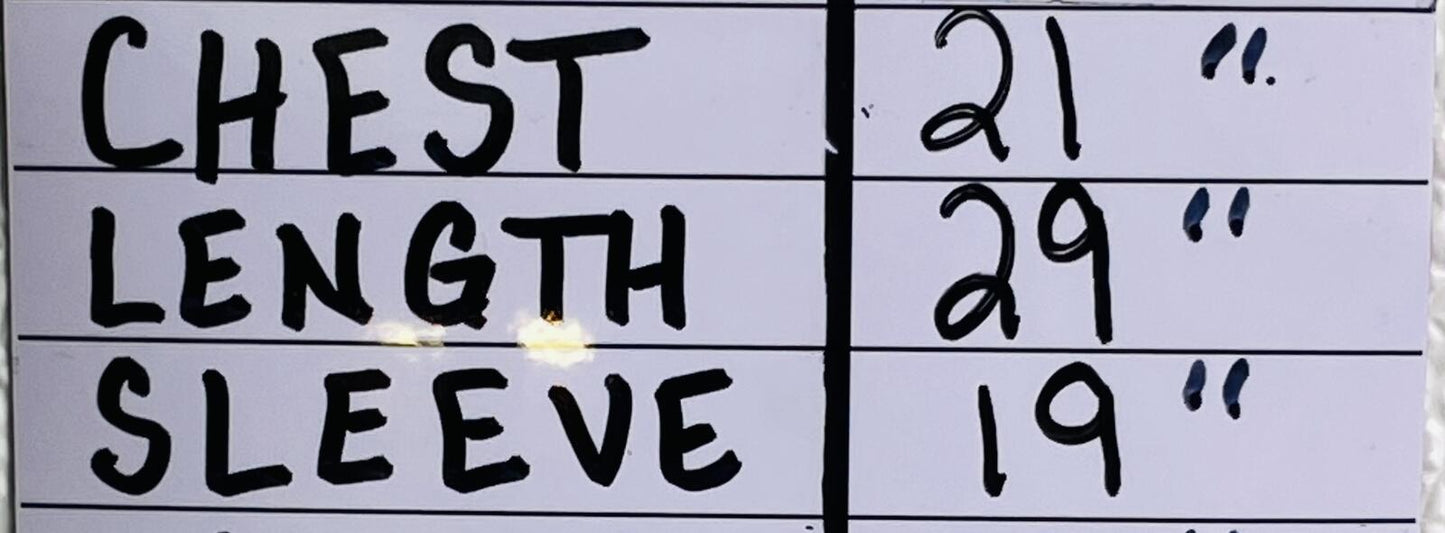 CHEST 21 ".
LENGTH 29 "
SLEEVE 19 "